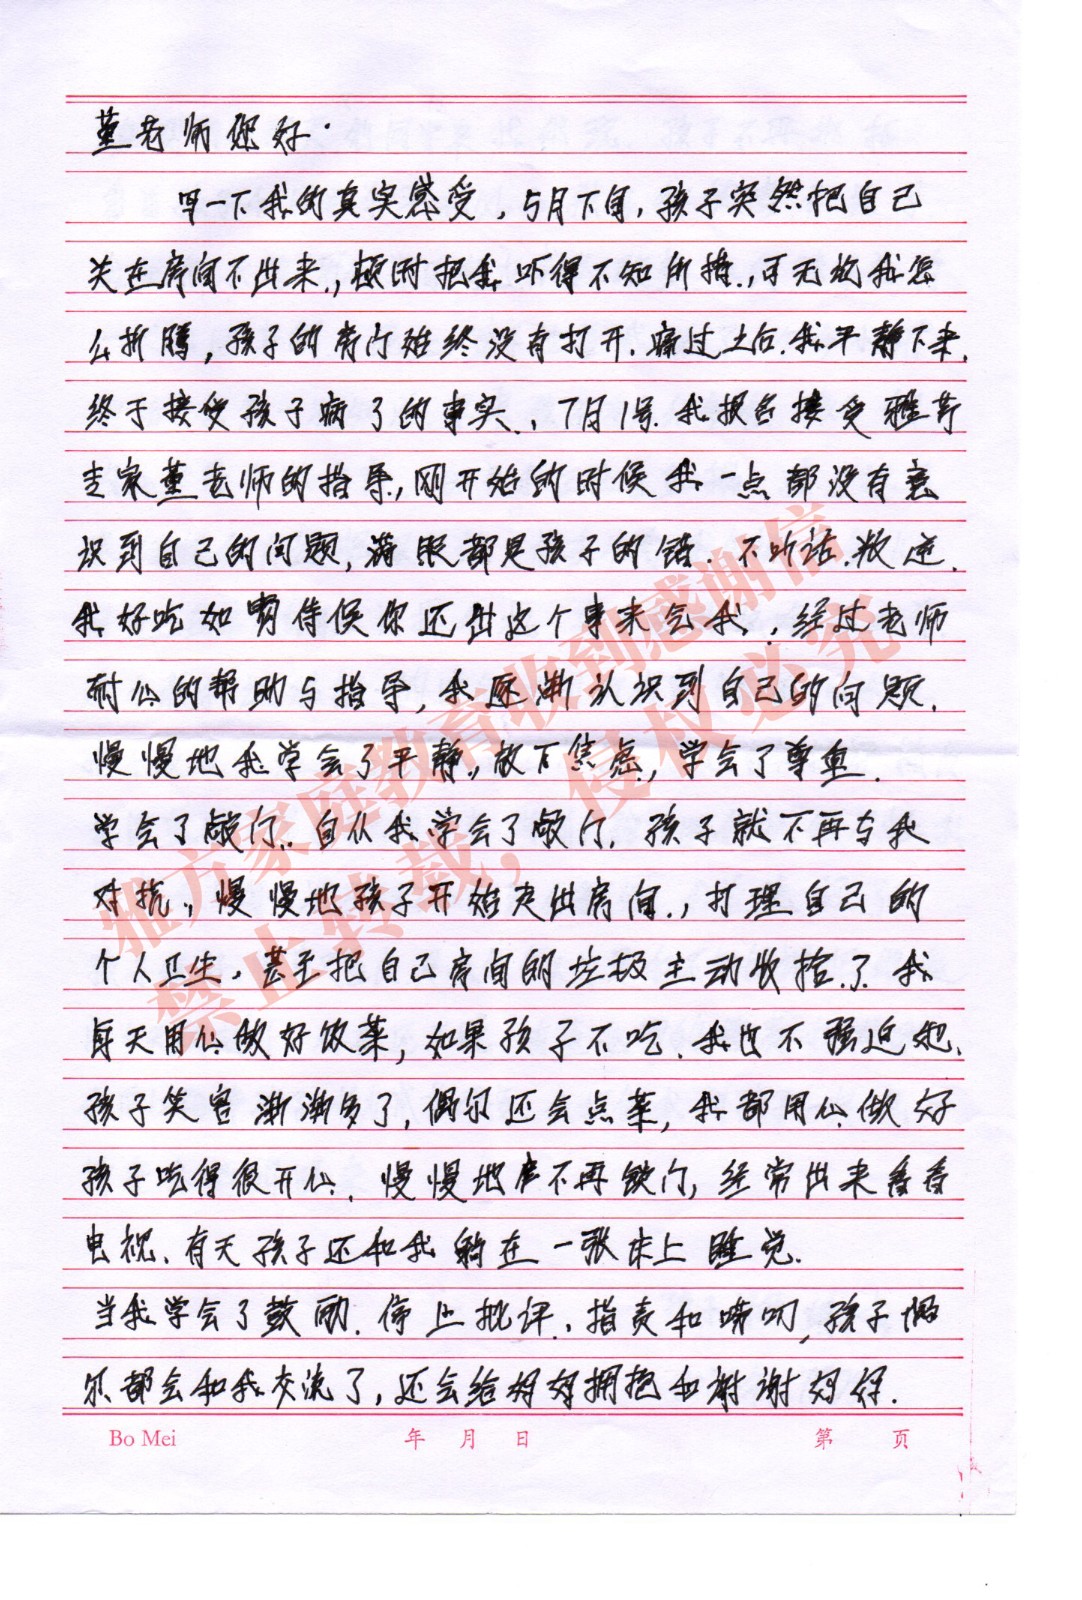 董老师您好.
写一下我的真实感受,5月下旬,孩子突然把自己
关在房间不出来,顿时把我吓得不知所措,可无论我怎
么折腾,孩子的房门始终没有打开.痛过之后.我平静下来,
终于接受孩子病了的事实、7月1号.我报名接受雅芳
专家董老师的指导,刚开始的时候我一点都没有意
识到自己的问题,满眼都是孩子的错.不听话.叛逆.
我好吃如侍候你还出这个事来
经过老师
耐心的帮助与指导,我逐渐认识到自己的问题.
慢慢地我学会了平静,放下焦虑,学会了尊重.
学会了敲门.自从我学会了敲门,孩子就不再与我
对抗,慢慢地孩子开始走出房间,打理自己的
个人卫生,甚至把自己房间的垃圾主动收拾了.我
每天用心做好饭菜,如果孩子不吃.我也不强迫她.
孩子笑容渐渐多了,偶尔还会点菜,我都用心做好
孩子吃得很开心.慢慢地不再锁门,经常出来看看
电视.有天孩子还和我躺在一张床上睡觉.
当我学会了鼓励.停止批评、指责和唠叨,孩子偶
尔都会和我交流了,还会给妈妈拥抱和谢谢妈妈.
雅方家庭教育收到感谢信
禁止转载,侵权必究
Bo Mei 年 月 日 第 页